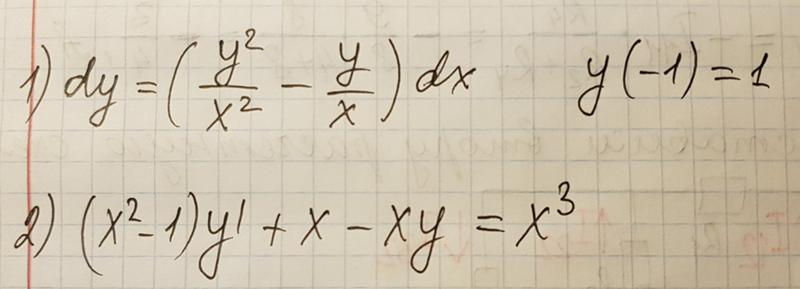 1) dy = (y²/x² − y/x) dx y(−1) = 1
2) (x²−1)y' + x − xy = x³